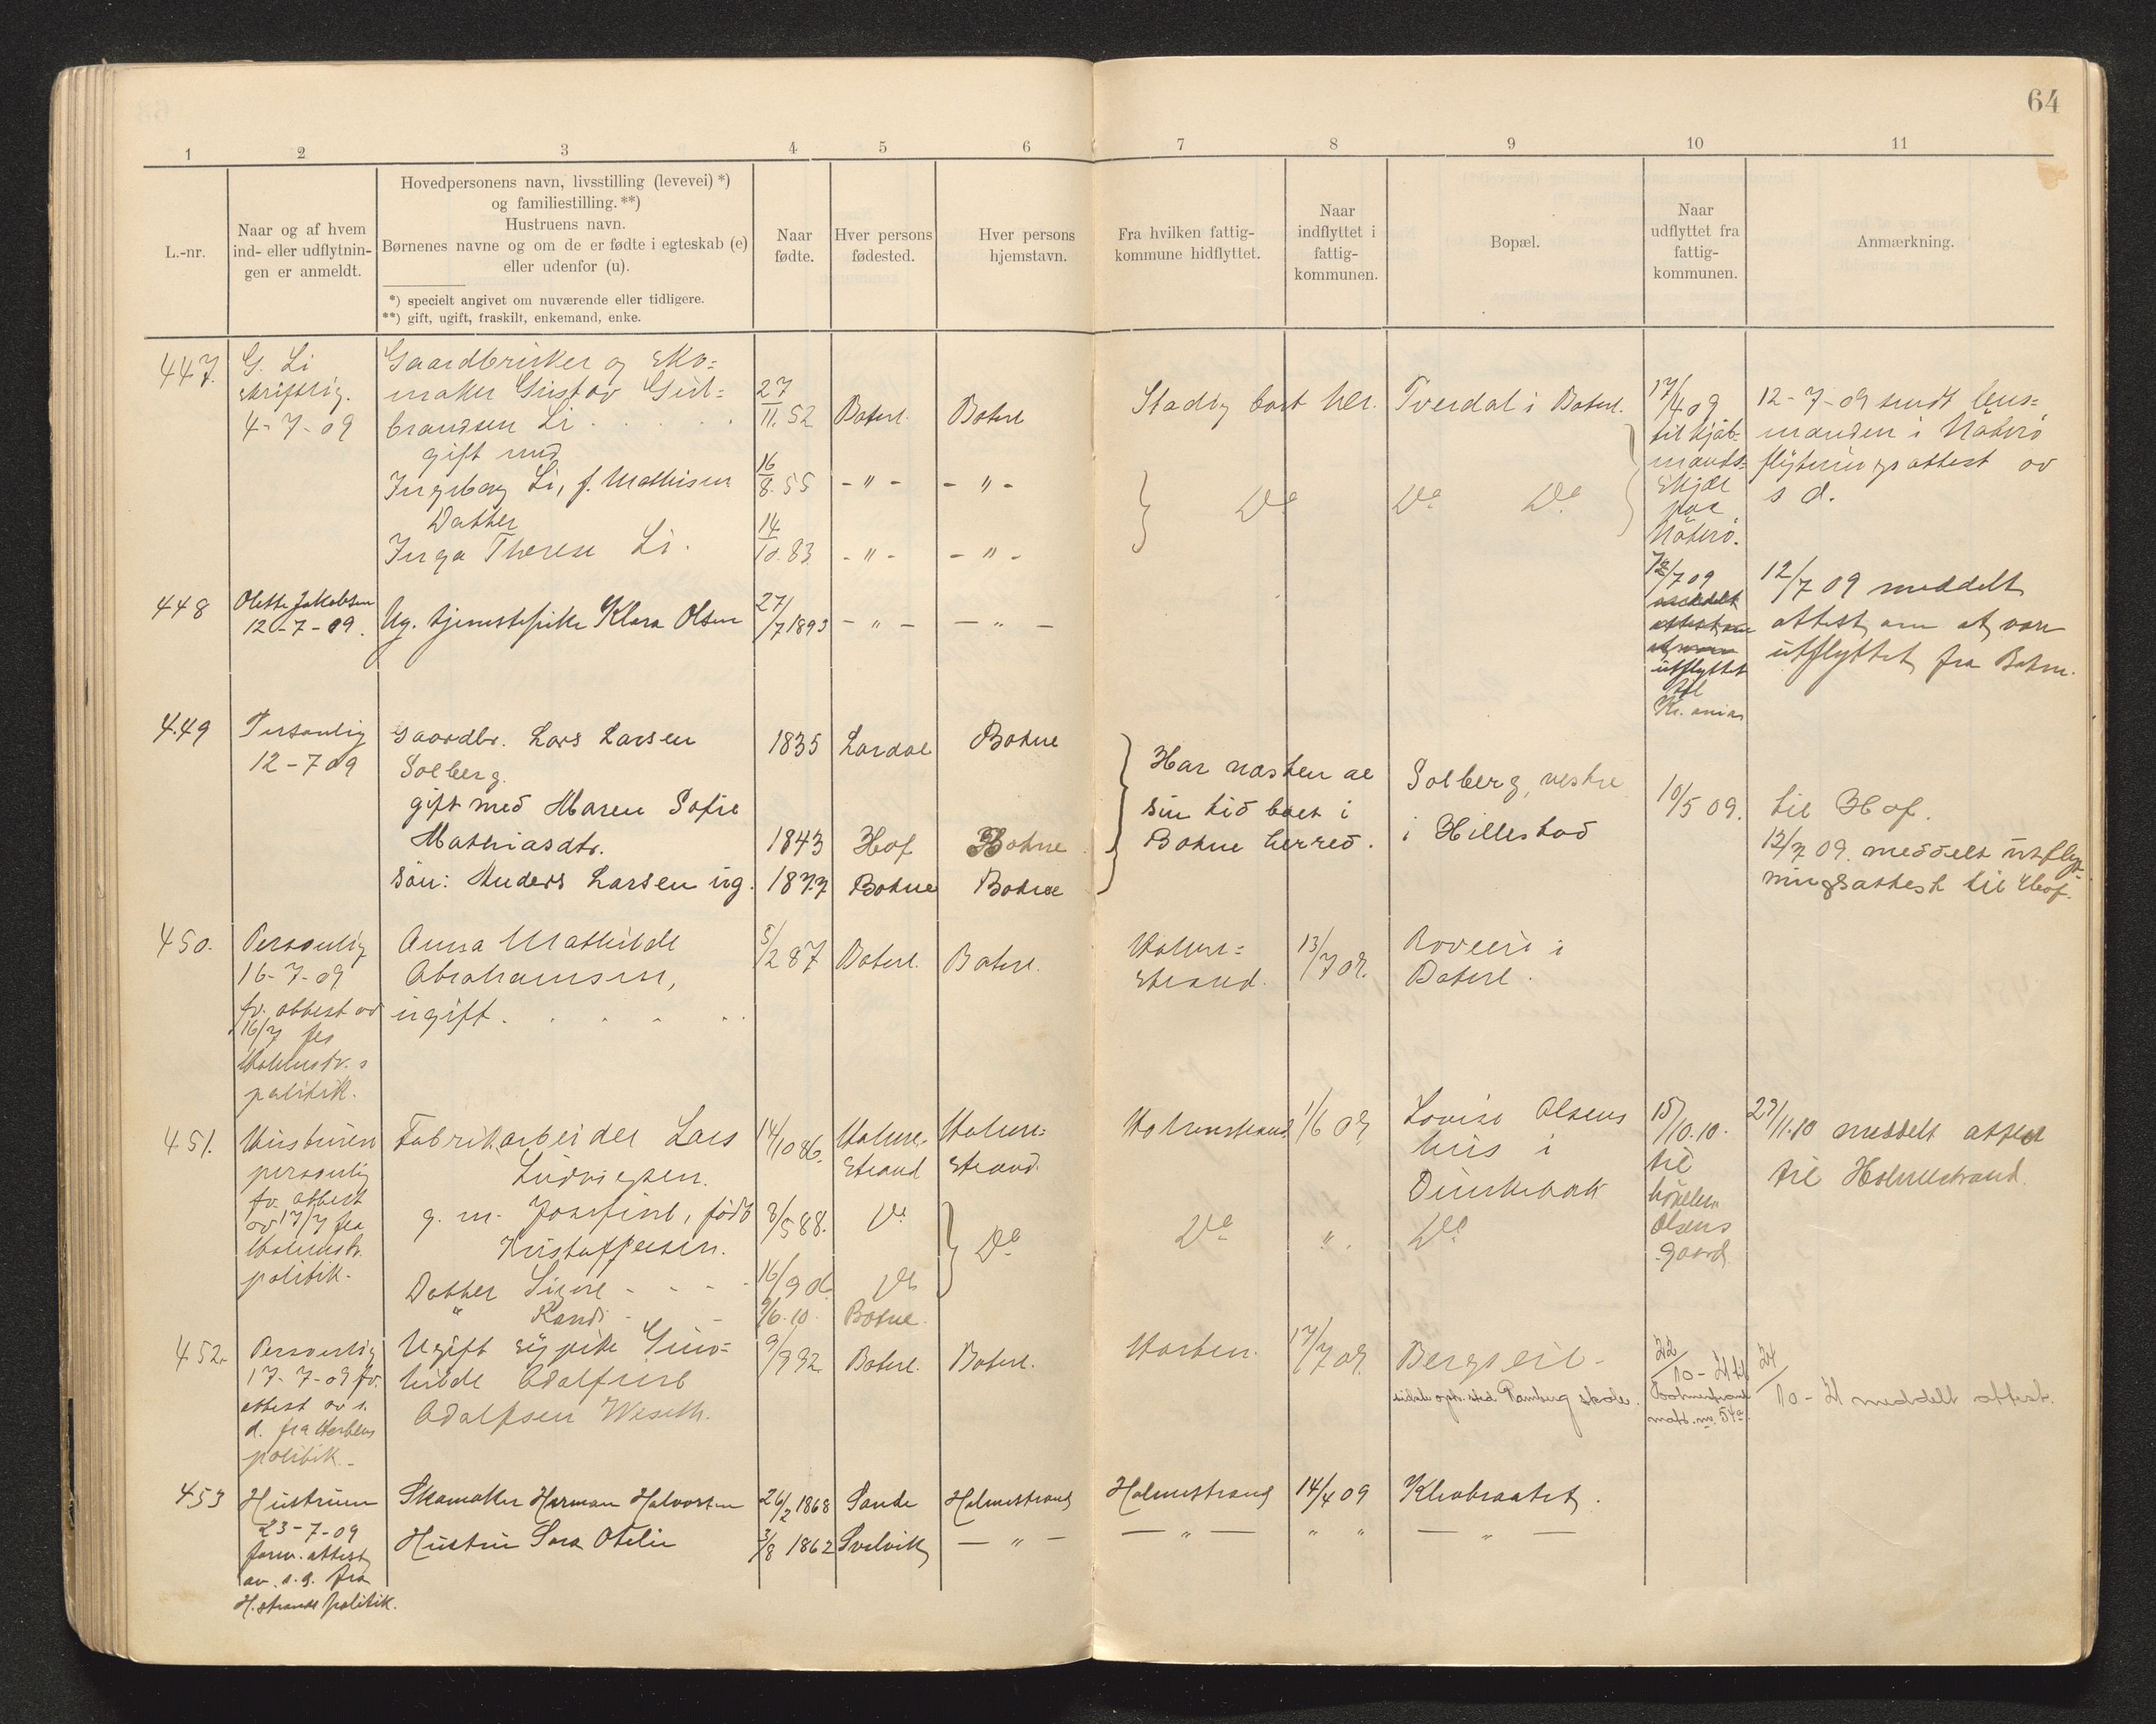 64
1 2 3 4 5 6 7 8 9 10 11
L.-nr.
Naar og af hvem
ind- eller udflytnin-
gen er anmeldt.
Hovedpersonens navn, livsstilling (levevei) *)
og familiestilling. **)
Hustruens navn.
Børnenes navne og om de er fødte i egteskab (e)
eller udenfor (u).
*) specielt angivet om nuværende eller tidligere.
**) gift, ugift, fraskilt, enkemand, enke.
Naar
fødte.
Hver persons
fødested.
Hver persons
hjemstavn.
Fra hvilken fattig-
kommune hidflyttet.
Naar
indflyttet i
fattig-
kommunen.
Bopæl.
Naar
udflyttet fra
fattig-
kommunen.
Anmærkning.
447.
G. Li
skriftlig.
4-7-09
Gaardbruker og sko-
maker Gustav Gul-
brandsen Li
gift med
Ingeborg Li, f. Mathisen
Datter
Inga Therese Li.
27/11.52 Botne. Botne
16/8.55 - " - - " -
14/10.83 - " - - " -
Stadig boet her. Tverdal i Botne.
Do Do Do
17/4 09
til Kjøb-
mands-
skjær
paa
Nøterø.
12-7-09 sendt lens-
manden i Nøterø
flytningsattest av
s d.
448
Olette Jakobsen
12-7-09.
Ug. tjenestepike Klara Olsen
27/7 1893 - " - - " -
12/7 09
meddelt
attest om
at være
utflyttet
til
Kr.ania
12/7 09 meddelt
attest om at være
utflyttet fra Botne.
449
Personlig
12-7 09
Gaardbr. Lars Larsen
Solberg.
gift med Maren Sofie
Mathiasdtr.
Søn: Anders Larsen ug.
1835 Lardal Botne
1843 Hof Botne
1877 Botne Botne
Har næsten al
sin tid boet i
Botne herred.
Solberg, vestre
i Hillestad
10/5 09.
til Hof.
12/7 09. meddelt utflyt-
ningsattest til Hof.
450.
Personlig
16-7-09
fv. attest av
16/7 fra
Holmstr.s
politik.
Anna Mathilde
Abrahamsen,
ugift.
5/2 87 Botne. Botne.
Holme-
strand.
13/7 09.
Roveli i
Botne.
451.
Hustruen
personlig
fv. attest
av 17/7 fra
Holmstr.
politik.
Fabrikarbeider Lars
Ludvigsen.
g. m. Josefine, født
Kristoffersen.
Datter Signe
" Randi
14/10 86. Holme-
strand
Holme-
strand.
8/5 88. Do
Do
16/9 d. Do
9/6.10. Botne.
Holmestrand 1/6 09.
Lovise Olsens
hus i
Dunkebak
Do " Do
15/10.10.
til
Olsens
gaard
29/11.10 meddelt attest
til Holmestrand.
452.
Personlig
17-7-09 fv.
attest av s.
d. fra Hortens
politik.
Ugift sypike Guno-
hilde Adolfine
Adolfsen Weseth.
9/9 92 Botne. Botne.
Horten. 17/7 09.
skole.
22/10 - 21 til
24/10 - 21 meddelt attest.
453
Hustruen
23-7-09
forev. attest
av s.d. fra
H.strands politik.
Skomaker Herman Halvorsen
Hustru Sara Otelie
26/2 1868 Sande Holmestrand
3/8 1862 Svelvik - " -
Holmestrand 14/4 09 Klevbraatet.
- " - " " - " -